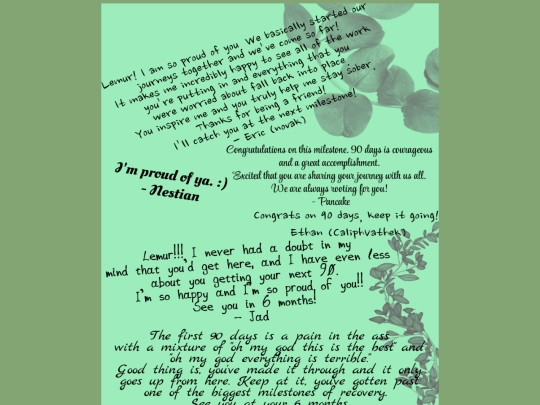 Lemur! I am so proud of you. We basically started our
journeys together and we've come so far!
It makes me incredibly happy to see all of the work
you're putting in and everything that you
were worried about fall back into place.
You inspire me and you truly help me stay sober.
Thanks for being a friend!
I'll catch you at the next milestone!
- Eric (novak)
Congratulations on this milestone. 90 days is courageous
and a great accomplishment.
Excited that you are sharing your journey with us all.
We are always rooting for you!
- Pancake
I'm proud of ya. :)
- Nestian
Congrats on 90 days, keep it going!
Ethan (Caliphvathek)
Lemur!!! I never had a doubt in my
mind that you'd get here, and I have even less
about you getting your next 90.
I'm so happy and I'm so proud of you!!
See you in 6 months!
-- Jad
The first 90 days is a pain in the ass
with a mixture of "oh my god this is the best" and
"oh my god everything is terrible."
Good thing is, you've made it through and it only
goes up from here. Keep at it, you've gotten past
one of the biggest milestones of recovery.
See you at your 6 months